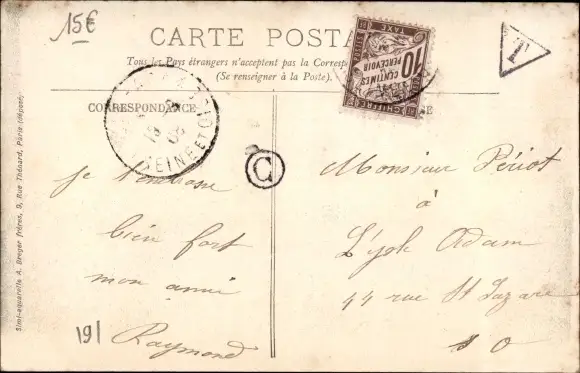 15€
CARTE POSTA
Tous les Pays étrangers n'acceptent pas la Corresp
(Se renseigner à la Poste).
10
CENTIMES
PERCEVOIR
TAXE
CHIFFRE
T
CORRESPONDANCE
SE
SEINE ET O
C
Je t'embrasse
bien fort
mon amie
Raymond
191
Monsieur Périot
à
44 rue St Lazare
S O
Simi-aquarelle A. Breger frères, 9, Rue Thénard, Paris (déposé)